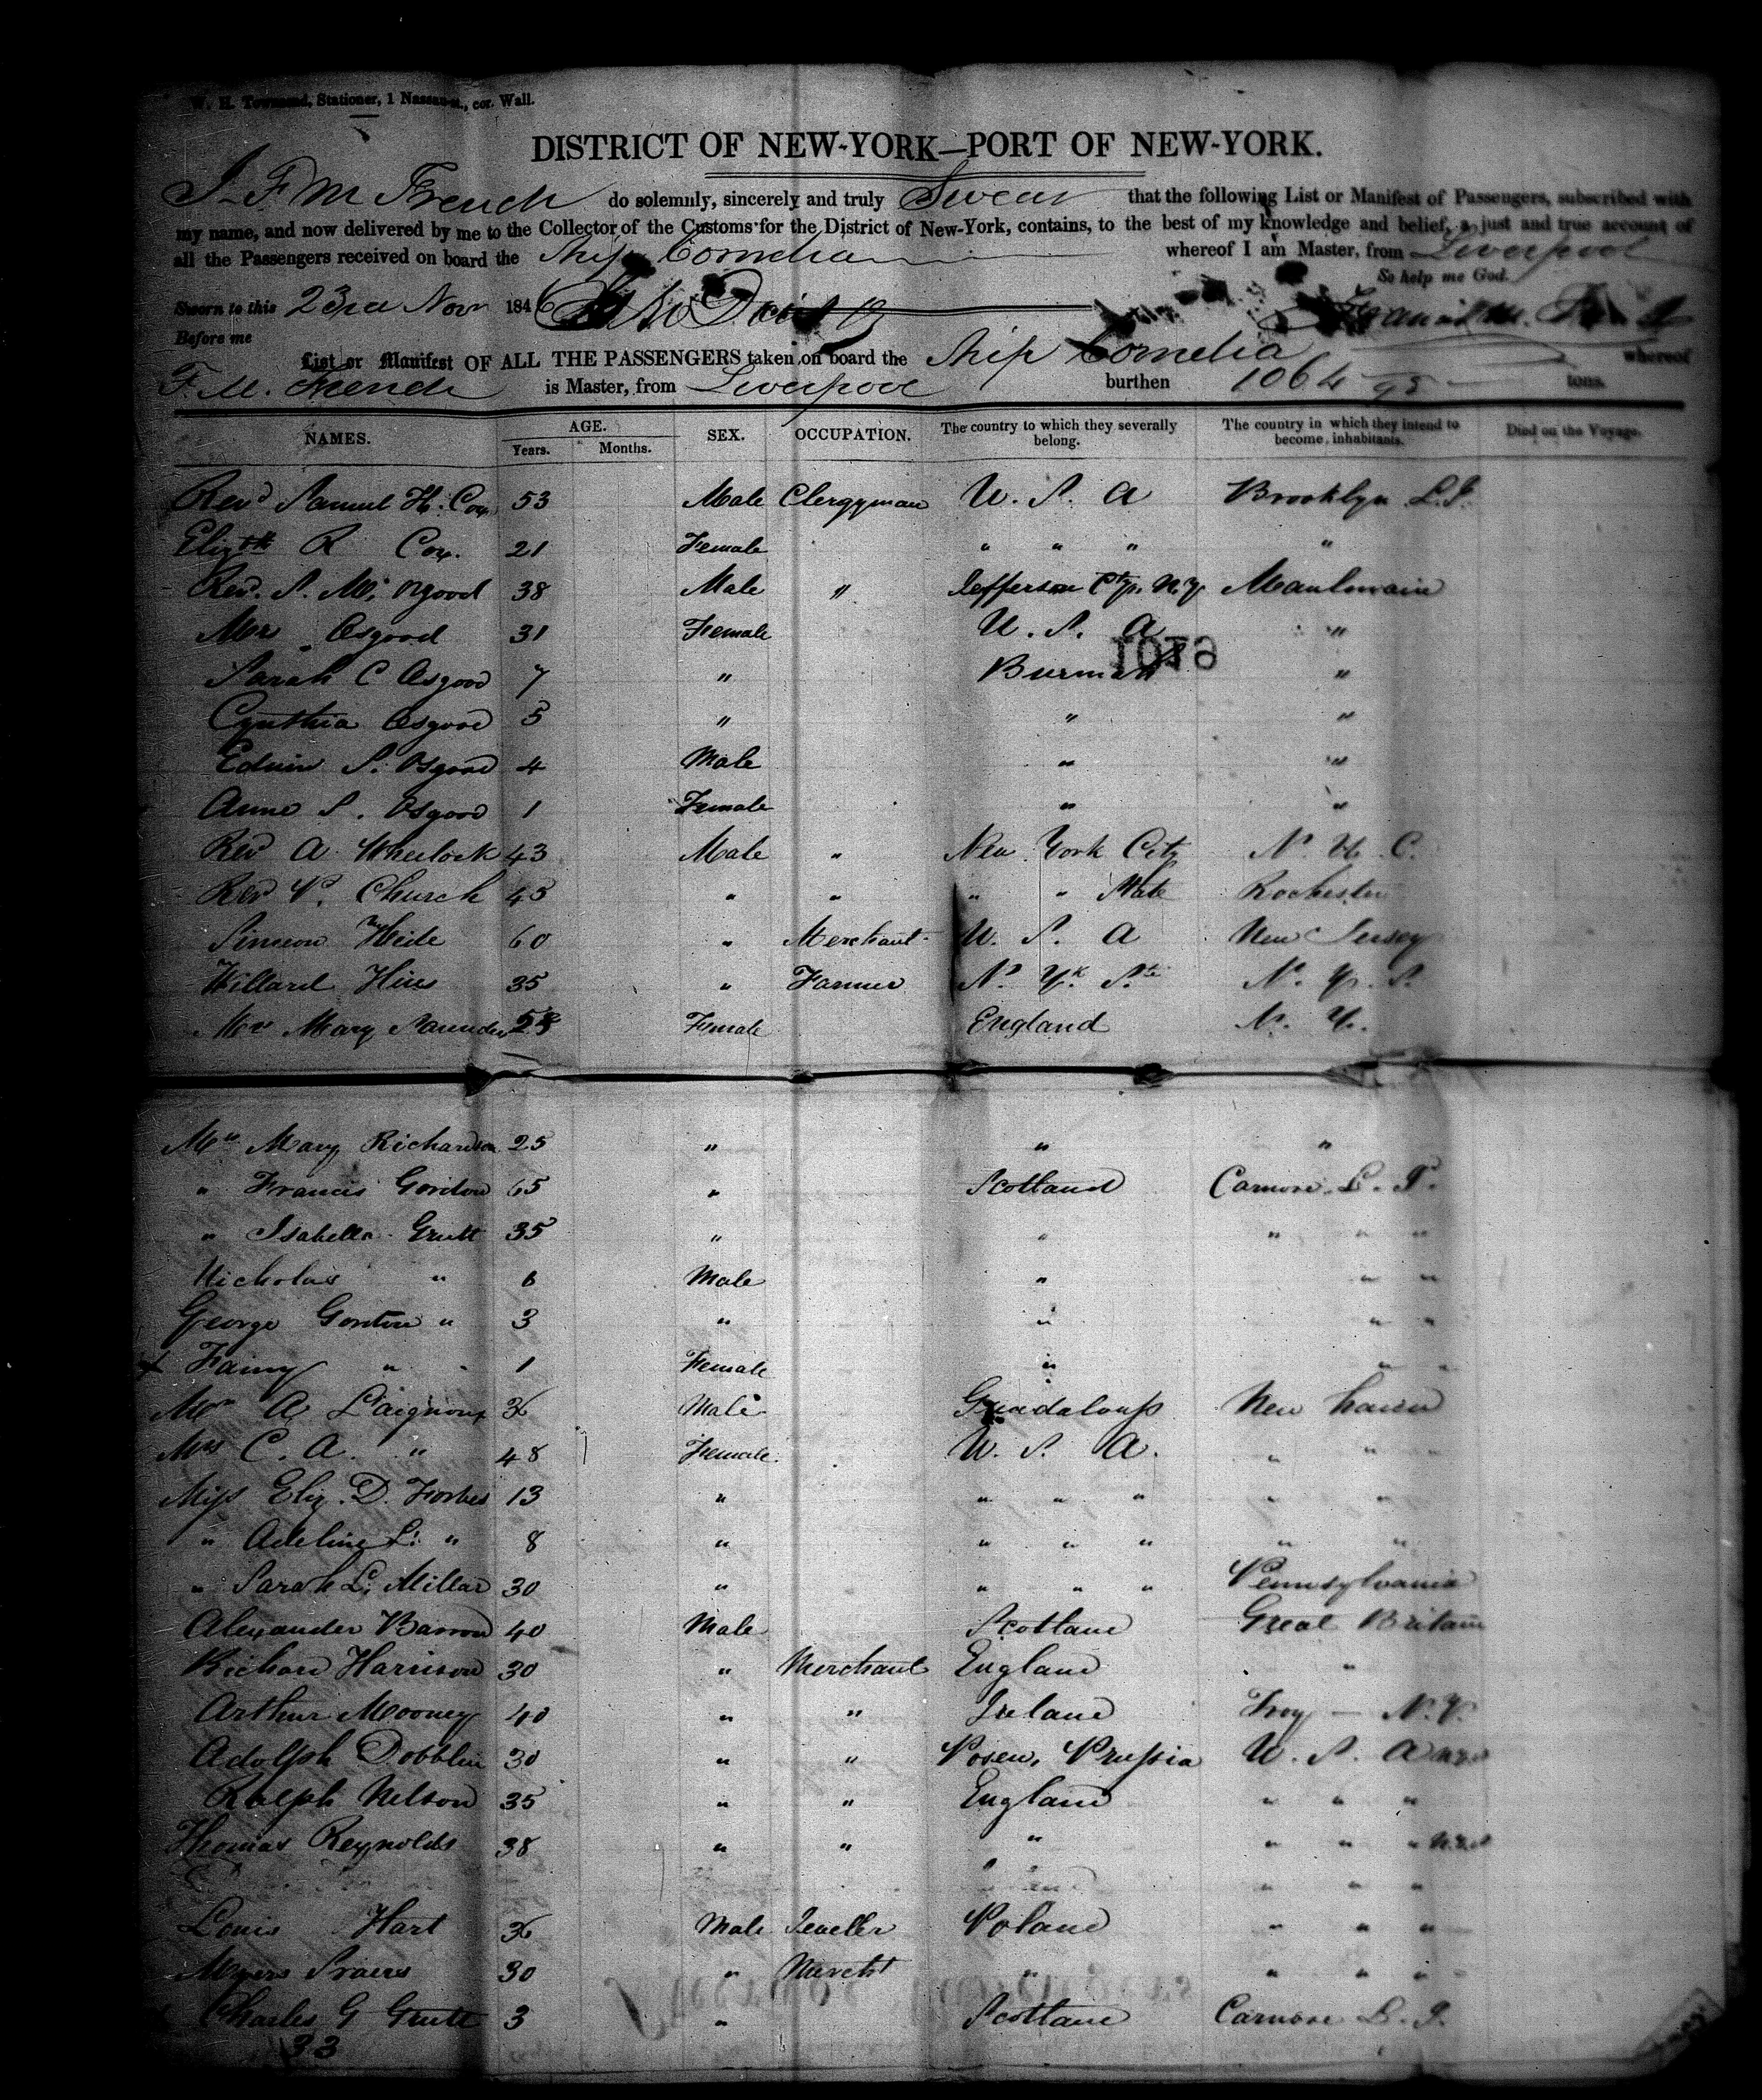 W. H. Townsend, Stationer, 1 Nassau-st., cor. Wall.
DISTRICT OF NEW-YORK—PORT OF NEW-YORK.
I F M French do solemnly, sincerely and truly Swear that the following List or Manifest of Passengers, subscribed with
my name, and now delivered by me to the Collector of the Customs for the District of New-York, contains, to the best of my knowledge and belief, a just and true account of
all the Passengers received on board the Ship Cornelia whereof I am Master, from Liverpool
So help me God.
Sworn to this 23rd Nov 1846
Before me
List or Manifest OF ALL THE PASSENGERS taken on board the Ship Cornelia whereof
F. M. French is Master, from Liverpool burthen 1064 95 tons.
NAMES. AGE. Years. Months. SEX. OCCUPATION. The country to which they severally belong. The country in which they intend to become inhabitants. Died on the Voyage.
Revd Samuel H. Cox 53 Male Clergyman U. S. A Brooklyn L.I.
Elizth R Cox. 21 Female " " " "
Rev. S. M. Osgood 38 Male " Jefferson Cty. N.Y Maulmain
Mrs Osgood 31 Female U. S. A "
1079
Sarah C Osgood 7 " Burmah "
Cynthia Osgood 5 " " "
Edwin S. Osgood 4 Male " "
Anne S. Osgood 1 Female " "
Rev A Wheelock 43 Male " New York City N. Y. C.
Rev P. Church 45 " " " " State Rochester
Simeon 60 " Merchant U. S. A New Jersey
Willard Hies 35 " Farmer N. Yk. Ste N. Y. S.
Mrs Mary Saunders Female England N. Y.
Mrs Mary Richardson 25 " " "
" Francis Gordon 65 " Scotland Carnore L. I.
" Isabella Gruitt 35 " " " " "
Nicholas " 6 Male " " "
George Gordon " 3 " " " "
x Fanny " " 1 Female " " "
Mr A L'aignoux 36 Male Guadaloup New haven
Mrs C. A. " 48 Female U. S. A. " "
Miss Eliz. D. Forbes 13 " " " " " "
" Adeline L. " 8 " " " " " "
" Sarah L. Millar 30 " " " " Pennsylvania
Alexander Barron 40 Male Scotland Great Britain
Richard Harrison 30 " Merchant England "
Arthur Mooney 40 " " Ireland Troy — N.Y.
Adolph Dobblin 30 " " Posen, Prussia U. S. A
Ralph Nelson 35 " " England " " "
Thomas Reynolds 38 " " " " " "
" " "
Louis Hart 36 Male Jeweller Poland " " "
Myers 30 " Mercht " " " "
Charles G Gruitt 3 " Scotland Carnore L. I.
33